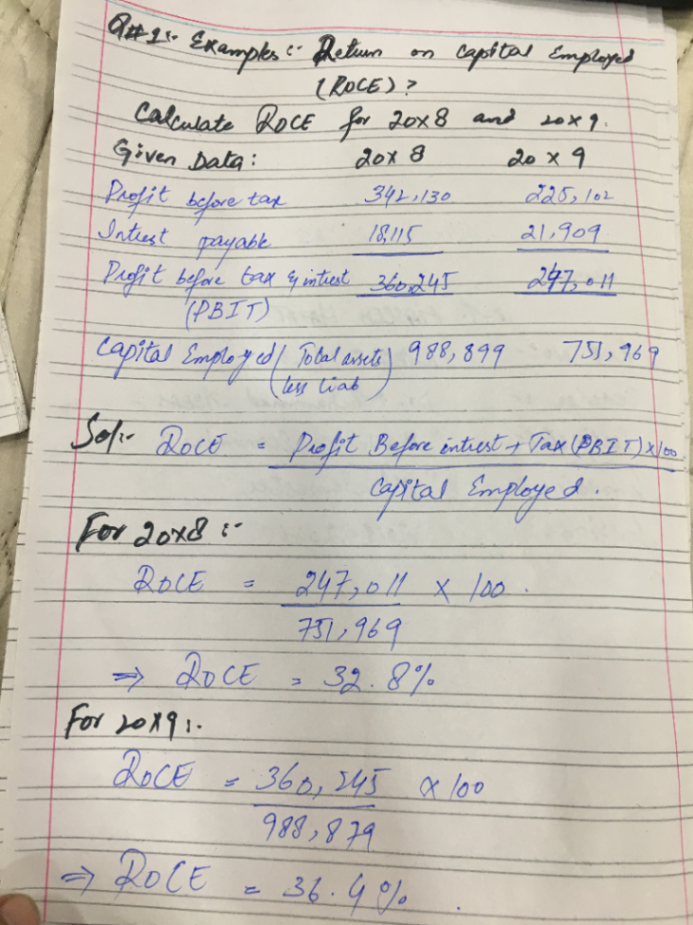 Q#1:- Examples:- Return on Capital Employed
(ROCE)?
Calculate ROCE for 20x8 and 20x9.
Given Data: 20x8 20x9
Profit before tax 342,130 225,102
Intrest payable 18,115 21,909
Profit before tax & intrest 360,245 247,011
(PBIT)
Capital Employed (Total assets less Liab) 988,899 751,969
Sol:- ROCE = Profit Before intrest + Tax (PBIT) x 100
Capital Employed.
For 20x8:-
ROCE = 247,011 x 100.
751,969
⇒ ROCE = 32.8%
For 20x9:-
ROCE = 360,245 x 100
988,879
⇒ ROCE = 36.4%.